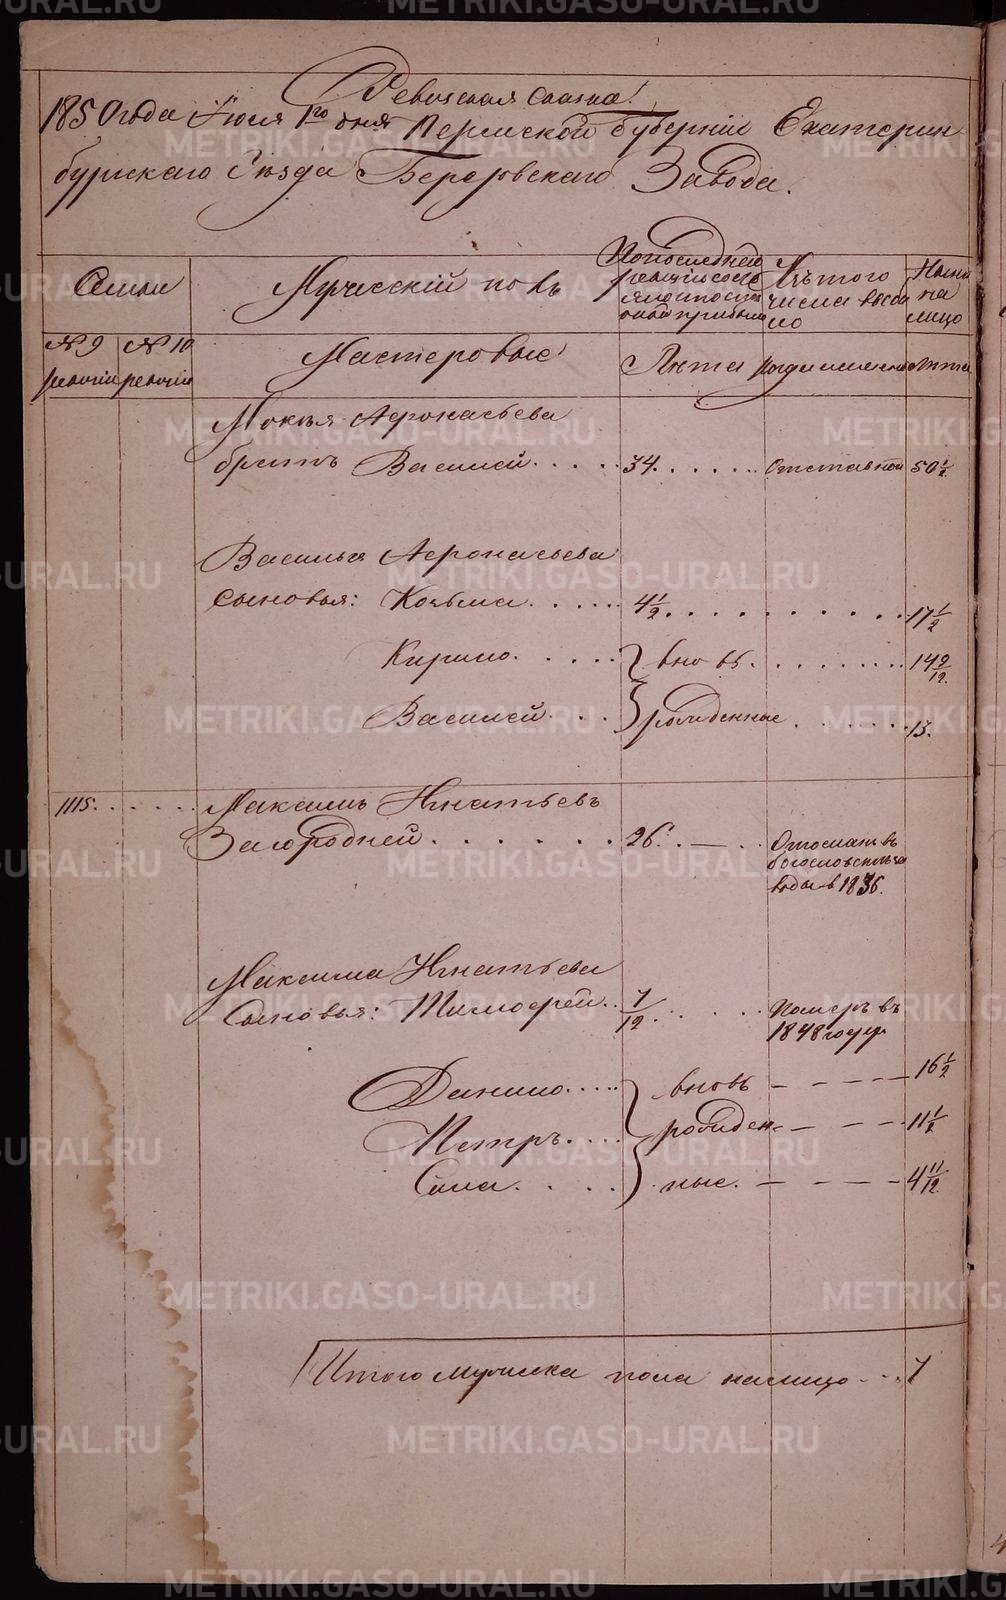 Ревизская сказка!
1850 года Июля 1го дня Пермской Губерніи Екатерин
бургскаго Уезда Березовскаго Завода.
Семьи
Мужескій полъ
По последней
ревизіи состо
яло и после
оной прибыло
Изъ того
числа выбы
ло
Ныне
на
лицо
№ 9 ревизіи
№ 10 ревизіи
Мастеровые
Лета
когда именно
Лета
Мокея Афонасьева
братъ Василей . . . . . 34. . . . . . . Отставной 50 1/2.
Василья Афонасьева
сыновья: Козьма . . . . . . 4 1/2. . . . . . . . . . . 17 1/2
Кирило. . . . . . вновь. . . . . . . . . 14 9/12.
Василей. . . . рожденные . . . . . . . . 13.
1115. . . . . . . Максимъ Игнатьевъ
Загородней . . . . . . . 26. . — . . Отосланъ въ
богословскіе за
воды в 1836.
Максима Игнатьева
Сыновья: Тимофей . . 7/12. . . . . . Померъ въ
1848 году
Данило. . . . . вновь — — — — 16 1/2
Петръ. . . . рожден- — — — 11 1/2
Сила. . . . . ные. — — — — 4 11/12.
Итого мужеска пола налицо - . . 7
METRIKI.GASO-URAL.RU